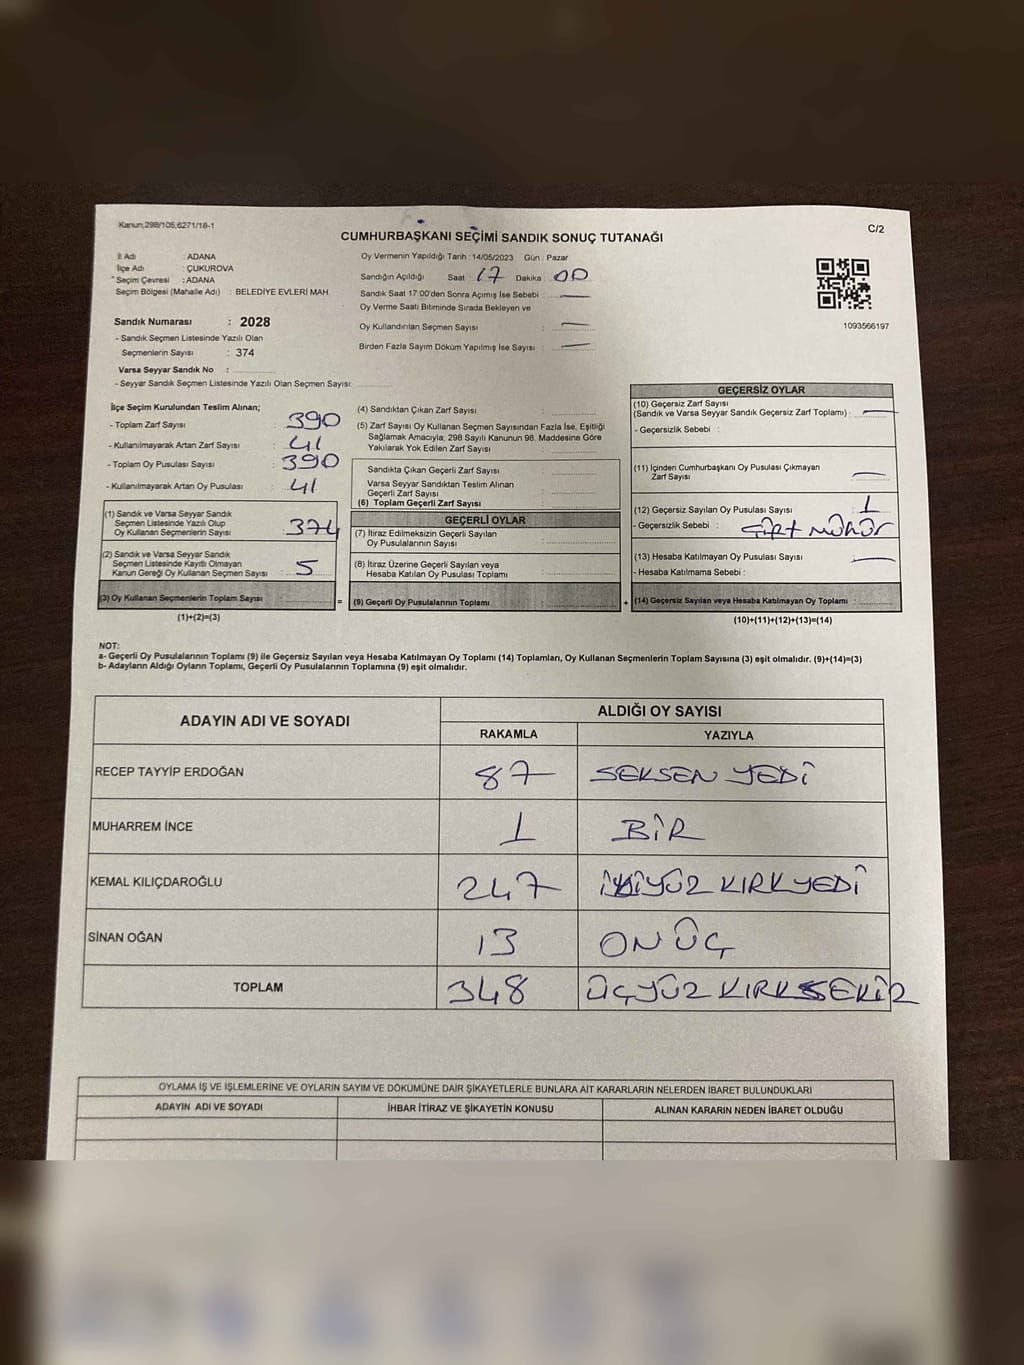 Kanun:298/105;6271/18-1
C/2
CUMHURBAŞKANI SEÇİMİ SANDIK SONUÇ TUTANAĞI
İl Adı : ADANA
İlçe Adı : ÇUKUROVA
Seçim Çevresi : ADANA
Seçim Bölgesi (Mahalle Adı) : BELEDİYE EVLERİ MAH.
Sandık Numarası : 2028
- Sandık Seçmen Listesinde Yazılı Olan
Seçmenlerin Sayısı : 374
Varsa Seyyar Sandık No :
- Seyyar Sandık Seçmen Listesinde Yazılı Olan Seçmen Sayısı:
Oy Vermenin Yapıldığı Tarih : 14/05/2023 Gün : Pazar
Sandığın Açıldığı Saat : 17 Dakika : 00
Sandık Saat 17:00'den Sonra Açımış İse Sebebi : —
Oy Verme Saati Bitiminde Sırada Bekleyen ve
Oy Kullandırılan Seçmen Sayısı : —
Birden Fazla Sayım Döküm Yapılmış İse Sayısı : —
1093566197
İlçe Seçim Kurulundan Teslim Alınan;
- Toplam Zarf Sayısı : 390
- Kullanılmayarak Artan Zarf Sayısı : 41
- Toplam Oy Pusulası Sayısı : 390
- Kullanılmayarak Artan Oy Pusulası : 41
(1) Sandık ve Varsa Seyyar Sandık
Seçmen Listesinde Yazılı Olup
Oy Kullanan Seçmenlerin Sayısı : 374
(2) Sandık ve Varsa Seyyar Sandık
Seçmen Listesinde Kayıtlı Olmayan
Kanun Gereği Oy Kullanan Seçmen Sayısı : 5
(3) Oy Kullanan Seçmenlerin Toplam Sayısı :
(1)+(2)=(3)
(4) Sandıktan Çıkan Zarf Sayısı :
(5) Zarf Sayısı Oy Kullanan Seçmen Sayısından Fazla İse, Eşitliği
Sağlamak Amacıyla; 298 Sayılı Kanunun 98. Maddesine Göre
Yakılarak Yok Edilen Zarf Sayısı :
Sandıkta Çıkan Geçerli Zarf Sayısı :
Varsa Seyyar Sandıktan Teslim Alınan
Geçerli Zarf Sayısı :
(6) Toplam Geçerli Zarf Sayısı :
GEÇERLİ OYLAR
(7) İtiraz Edilmeksizin Geçerli Sayılan
Oy Pusulalarının Sayısı :
(8) İtiraz Üzerine Geçerli Sayılan veya
Hesaba Katılan Oy Pusulası Toplamı :
= (9) Geçerli Oy Pusulalarının Toplamı :
GEÇERSİZ OYLAR
(10) Geçersiz Zarf Sayısı
(Sandık ve Varsa Seyyar Sandık Geçersiz Zarf Toplamı) : —
- Geçersizlik Sebebi :
(11) İçinden Cumhurbaşkanı Oy Pusulası Çıkmayan
Zarf Sayısı : —
(12) Geçersiz Sayılan Oy Pusulası Sayısı : 1
- Geçersizlik Sebebi : ÇİFT MÜHÜR
(13) Hesaba Katılmayan Oy Pusulası Sayısı : —
- Hesaba Katılmama Sebebi :
+ (14) Geçersiz Sayılan veya Hesaba Katılmayan Oy Toplamı :
(10)+(11)+(12)+(13)=(14)
NOT:
a- Geçerli Oy Pusulalarının Toplamı (9) ile Geçersiz Sayılan veya Hesaba Katılmayan Oy Toplamı (14) Toplamları, Oy Kullanan Seçmenlerin Toplam Sayısına (3) eşit olmalıdır. (9)+(14)=(3)
b- Adayların Aldığı Oyların Toplamı, Geçerli Oy Pusulalarının Toplamına (9) eşit olmalıdır.
ADAYIN ADI VE SOYADI
ALDIĞI OY SAYISI
RAKAMLA YAZIYLA
RECEP TAYYİP ERDOĞAN 87 SEKSEN YEDİ
MUHARREM İNCE 1 BİR
KEMAL KILIÇDAROĞLU 247 İKİYÜZ KIRKYEDİ
SİNAN OĞAN 13 ONÜÇ
TOPLAM 348 ÜÇYÜZ KIRKSEKİZ
OYLAMA İŞ VE İŞLEMLERİNE VE OYLARIN SAYIM VE DÖKÜMÜNE DAİR ŞİKAYETLERLE BUNLARA AİT KARARLARIN NELERDEN İBARET BULUNDUKLARI
ADAYIN ADI VE SOYADI İHBAR İTİRAZ VE ŞİKAYETİN KONUSU ALINAN KARARIN NEDEN İBARET OLDUĞU